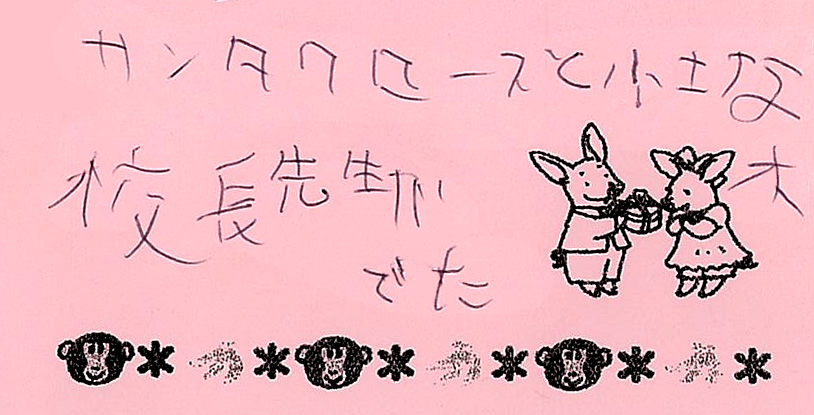 サンタクロースと小さな
校長先生が 木
でた